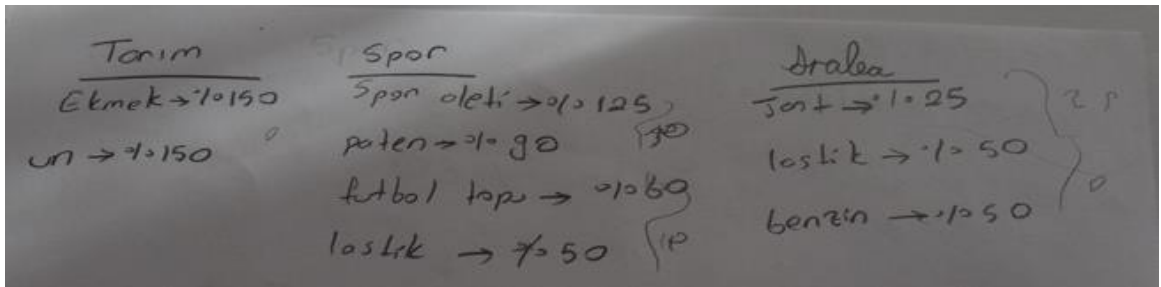 Tarım
Ekmek → %150
un → %150
Spor
Spor aleti → % 125
paten → % 90
futbol topu → % 60
lastik → % 50
Araba
Jant → % 25
lastik → % 50
benzin → % 50